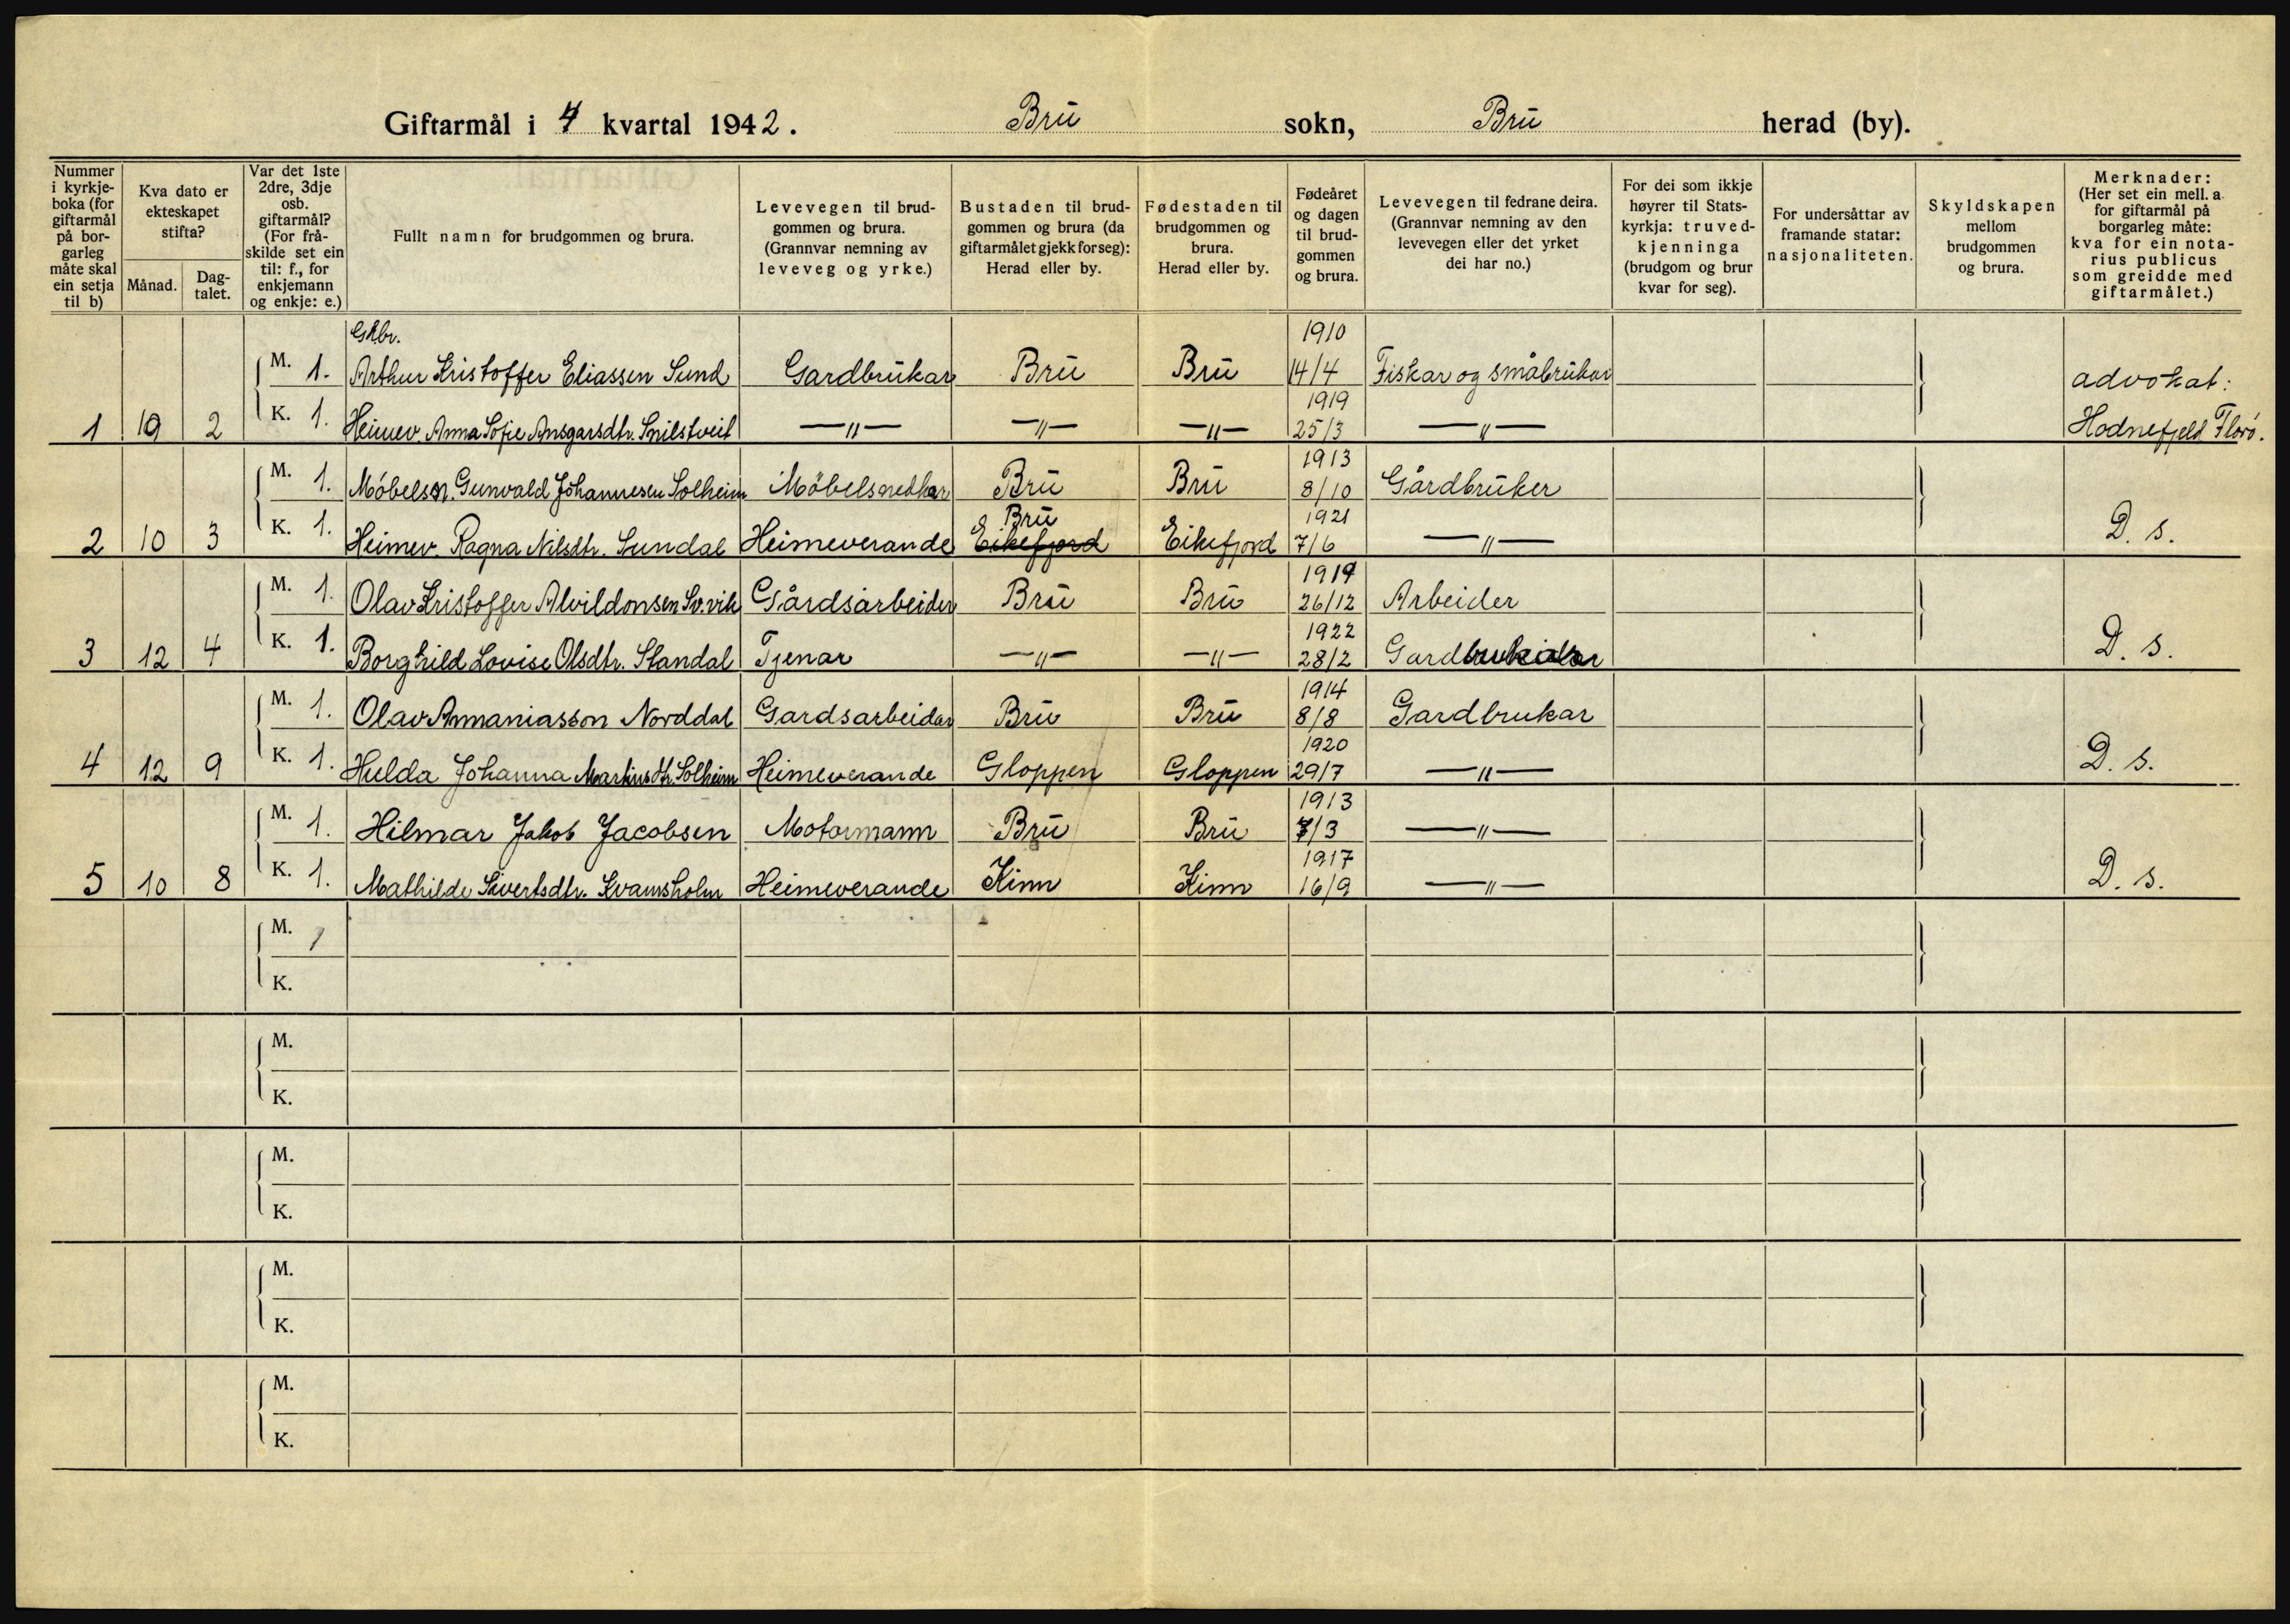 Giftarmål i 4 kvartal 1942. Bru sokn, Bru herad (by).
Nummer i kyrkje- boka (for giftarmål på bor- garleg måte skal ein setja til b)
Kva dato er ekteskapet stifta?
Månad.
Dag- talet.
Var det 1ste 2dre, 3dje osb. giftarmål? (For frå- skilde set ein til: f., for enkjemann og enkje: e.)
Fullt namn for brudgommen og brura.
Levevegen til brud- gommen og brura. (Grannvar nemning av leveveg og yrke.)
Bustaden til brud- gommen og brura (da giftarmålet gjekk for seg): Herad eller by.
Fødestaden til brudgommen og brura. Herad eller by.
Fødeåret og dagen til brud- gommen og brura.
Levevegen til fedrane deira. (Grannvar nemning av den levevegen eller det yrket dei har no.)
For dei som ikkje høyrer til Stats- kyrkja: truved- kjenninga (brudgom og brur kvar for seg).
For undersåttar av framande statar: nasjonaliteten.
Skyldskapen mellom brudgommen og brura.
Merknader: (Her set ein mell. a. for giftarmål på borgarleg måte: kva for ein nota- rius publicus som greidde med giftarmålet.)
Gkbr. 1910
M. 1. Arthur Kristoffer Eliassen Sund Gardbrukar Bru Bru 14/4 Fiskar og småbrukar advokat:
1919
1 10 2 K. 1. Heimev. Anna Sofie Ansgarsdtr. —"— —"— —"— 25/3 —"— Hodnefjeld Florø.
1913
M. 1. Møbelsn. Gunvald Johannesen Solheim Møbelsnedkar Bru Bru 8/10 Gårdbruker
Bru 1921
2 10 3 K. 1. Heimev. Ragna Nilsdtr. Sundal Heimeverande Eikefjord Eikefjord 7/6 —"— D. s.
1919
M. 1. Olav Kristoffer Alvildonsen Sv.vik Gårdsarbeider Bru Bru 26/12 Arbeider
1922
3 12 4 K. 1. Borghild Lovise Olsdtr. Standal Tjenar —"— —"— 28/2 Gardbrukar D. s.
1914
M. 1. Olav Annaniasson Norddal Gardsarbeidar Bru Bru 8/8 Gardbrukar
1920
4 12 9 K. 1. Hulda Johanna Martinsdtr. Solheim Heimeverande Gloppen Gloppen 29/7 —"— D. s.
1913
M. 1. Hilmar Jakob Jacobsen Motormann Bru Bru 7/3 —"—
1917
5 10 8 K. 1. Mathilde Sivertsdtr. Kvamsholm Heimeverande Kinn Kinn 16/9 —"— D. s.
M.
K.
M.
K.
M.
K.
M.
K.
M.
K.